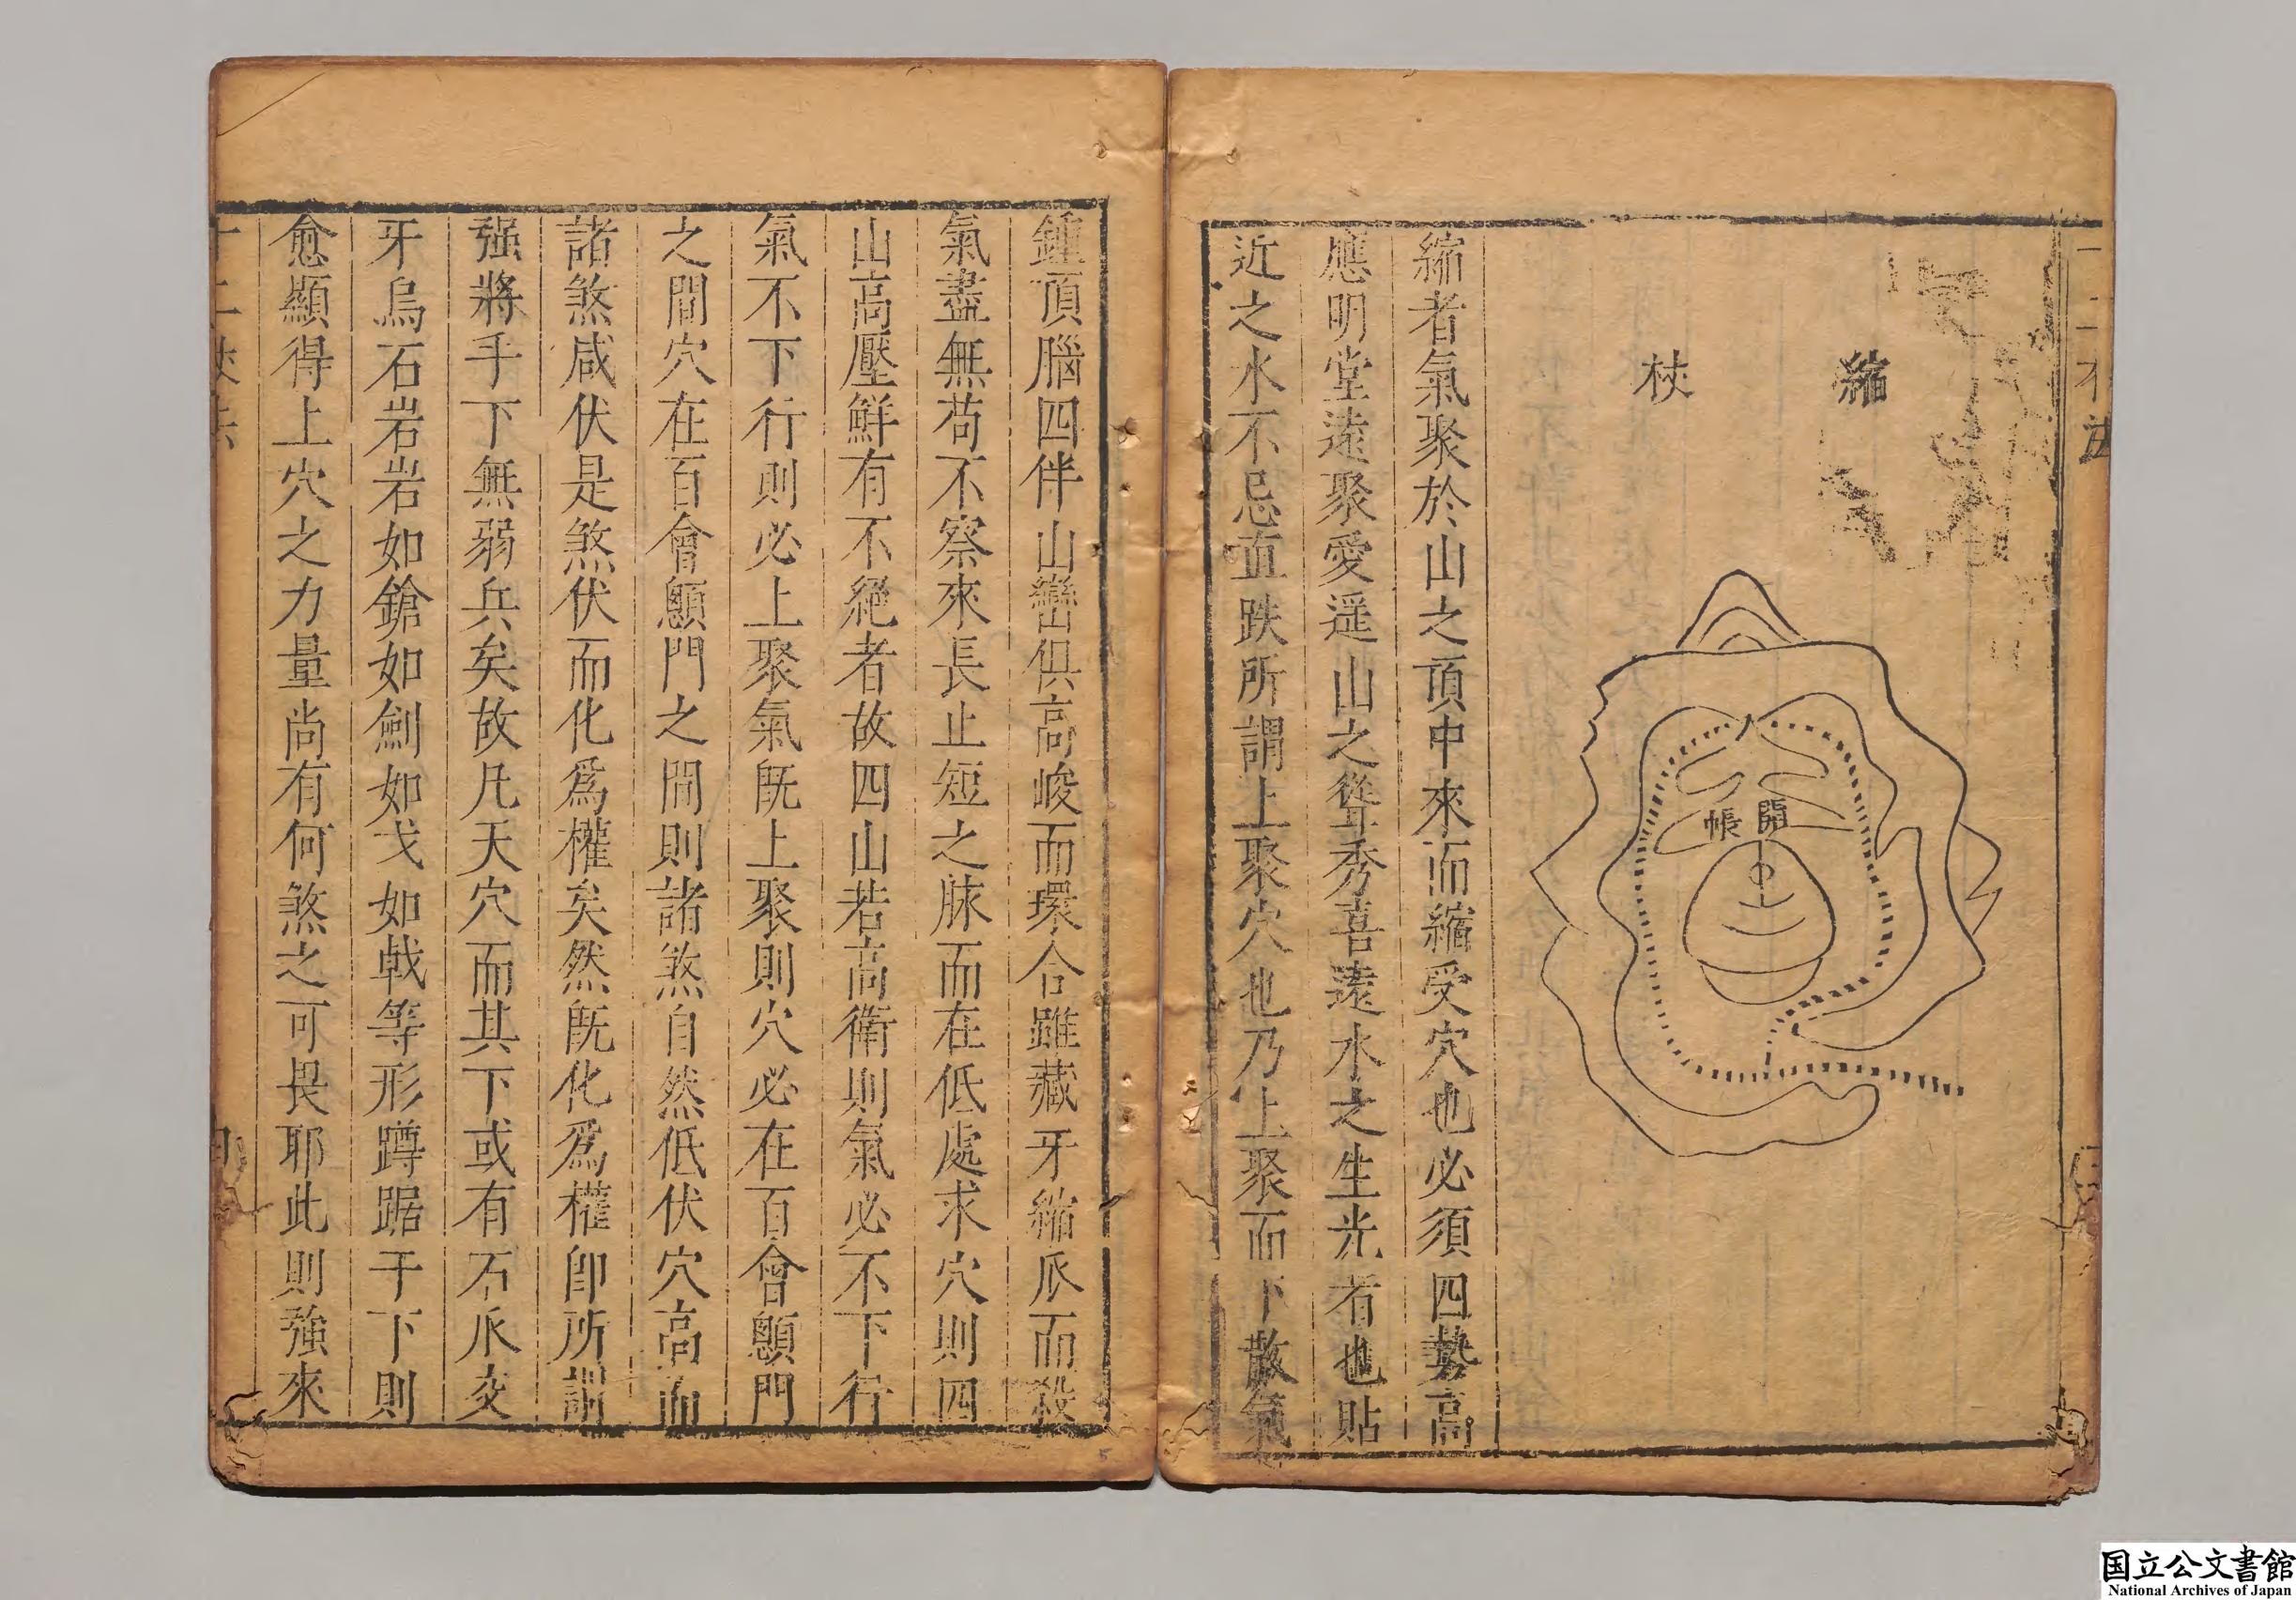 縮杖
開帳
縮者氣聚於山之頂中來而縮受穴也必須四勢高
應明堂遠聚愛遥山之聳秀喜遠水之生光者也貼
近之水不忌直跌所謂上聚穴也乃上聚而下散氣
鍾頂腦四伴山巒俱高峻而環合雖藏牙縮爪而殺
氣盡無苟不察來長止短之脉而在低處求穴則四
山高壓鮮有不絕者故四山若高衛則氣必不下行
氣不下行則必上聚氣既上聚則穴必在百會顖門
之間穴在百會顖門之間則諸煞自然低伏穴高而
諸煞咸伏是煞伏而化爲權矣然既化爲權卽所謂
强將手下無弱兵矣故凡天穴而其下或有石爪交
牙烏石岩岩如鎗如劍如戈如戟等形蹲踞于下則
愈顯得上穴之力量尚有何煞之可畏耶此則強來
国立公文書館
National Archives of Japan